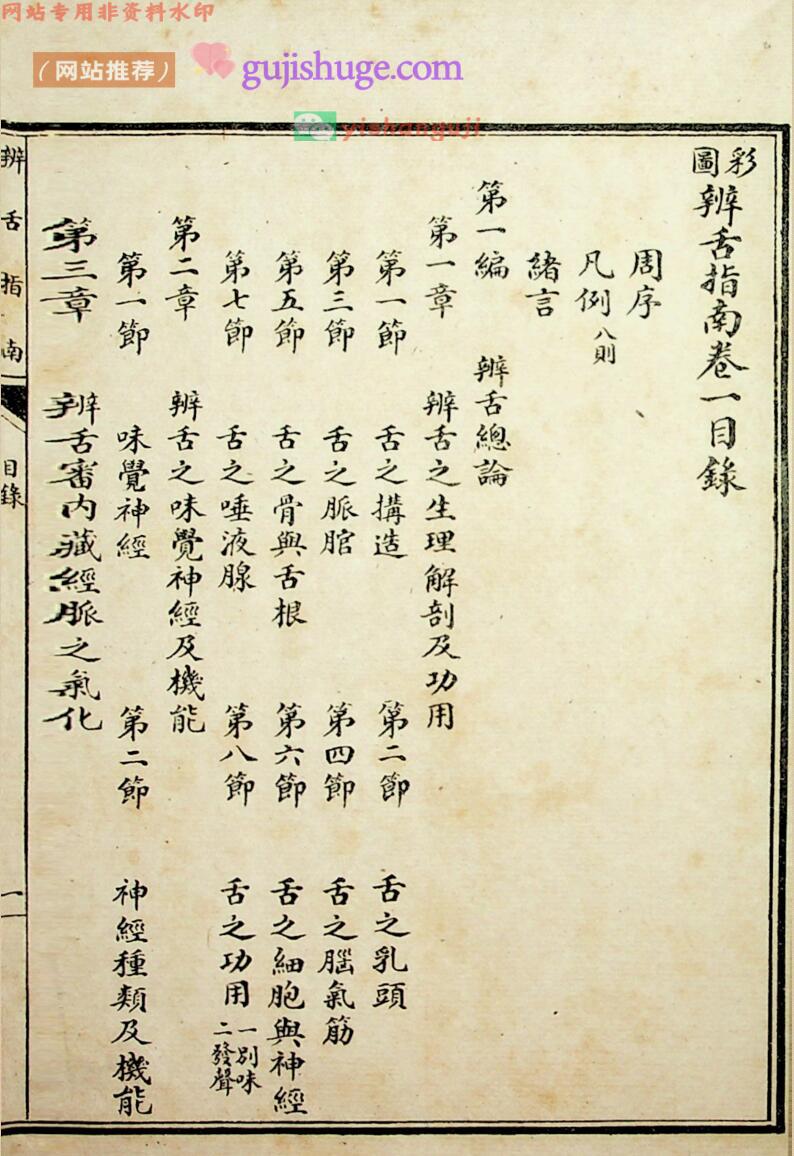 网站专用非资料水印
（网站推荐）
gujishuge.com
yishanguji
彩圖辨舌指南卷一目錄
周序
凡例 八則
緒言
第一編 辨舌總論
第一章 辨舌之生理解剖及功用
第一節 舌之搆造 第二節 舌之乳頭
第三節 舌之脈腔 第四節 舌之腦氣筋
第五節 舌之骨與舌根 第六節 舌之細胞與神經
第七節 舌之唾液腺 第八節 舌之功用 一別味 二發聲
第二章 辨舌之味覺神經及機能
第一節 味覺神經 第二節 神經種類及機能
第三章 辨舌審內藏經脈之氣化
辨舌指南 目錄 一